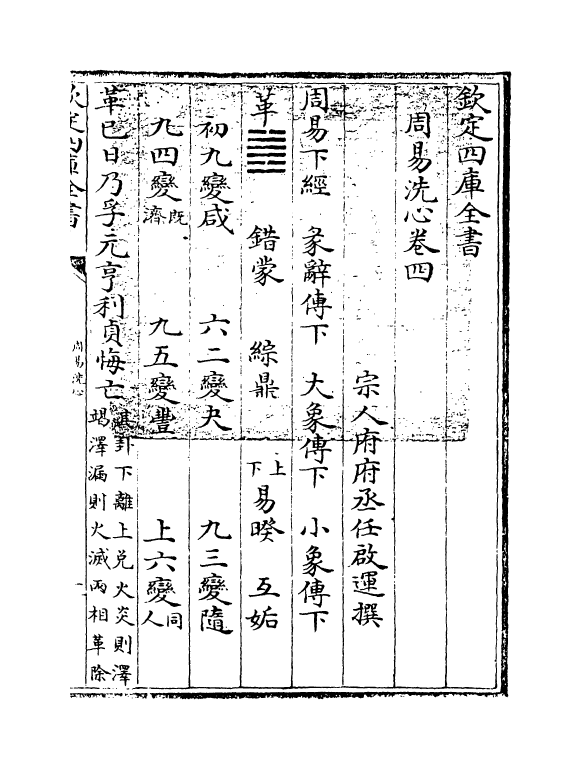 欽定四庫全書
周易洗心卷四
宗人府府丞任啟運撰
周易下經 彖辭傳下 大象傳下 小象傳下
革䷰ 錯蒙 綜鼎 上下易睽 互姤
初九變咸 六二變夬 九三變隨
九四變既濟 九五變豐 上六變同人
革巳日乃孚元亨利貞悔亡 卦下離上兌火炎則澤
竭澤漏則火滅兩相革除
欽定四庫全書
周易洗心
一